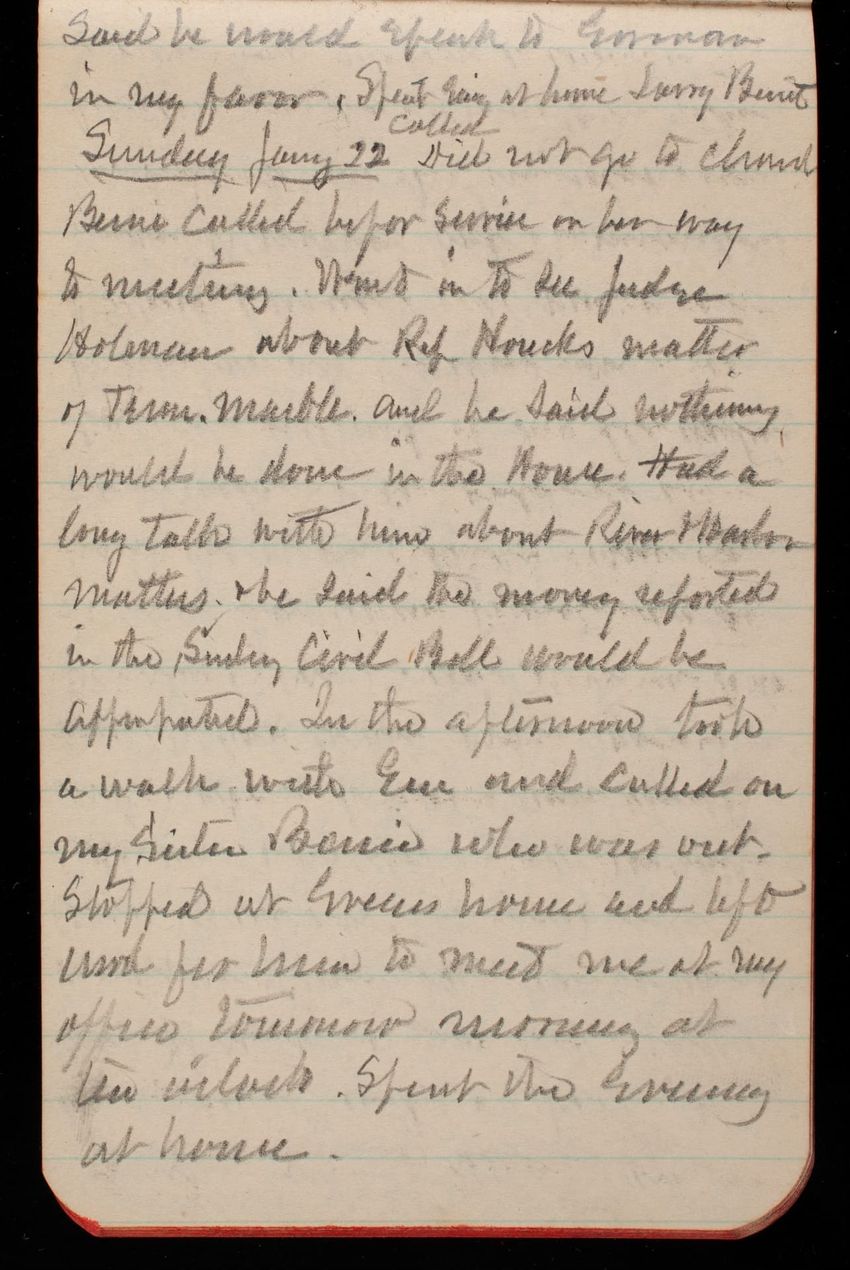 Said he would speak to Gorman
in my favor. Spent Evg at home Larry Bennt
Called
Sunday Jany 22 Did not go to Church
Bernie Called befor Service on her way
to meeting. Went in to See Judge
Holman about Rep Houcks matter
of Tenn. Marble. and he Said nothing
would be done in the House. Had a
long talk with him about River & Harbor
matters. & he Said the money reported
in the Sundry Civil Bill would be
appropated. In the afternoon took
a walk with Em and called on
my Sister Bernie who was out.
Stopped at Greens home and left
word for him to meet me at my
office tomorrow morning at
ten oclock. Spent the Evening
at home.